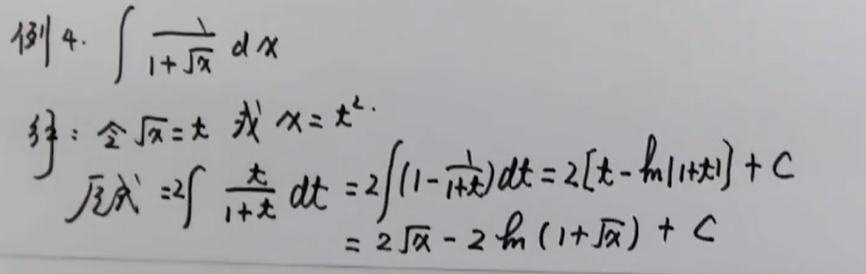 例4. ∫ 1/(1+√x) dx
解：令√x=t 或 x=t².
原式=2∫ t/(1+t) dt = 2∫(1-1/(1+t))dt = 2[t-ln|1+t|]+C
= 2√x - 2ln(1+√x) + C